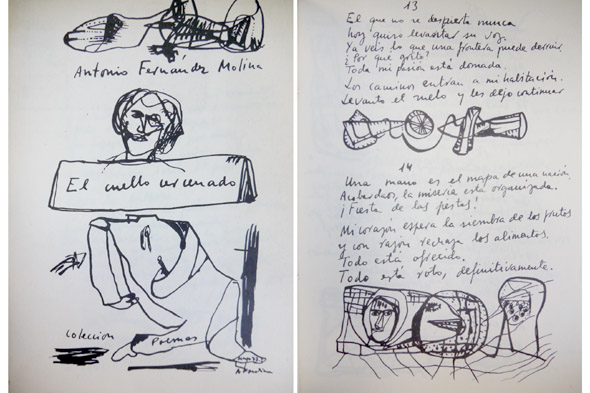 Antonio Fernández Molina
El cuello cercenado
Colección Poemas
13
El que no se despierta nunca
hoy quiso levantar su voz.
Ya veis lo que una frontera puede destruir.
¿Por qué grito?
Toda mi pasión está domada.
Los caminos entran a mi habitación.
Levanto el vuelo y les dejo continuar
14
Una mano es el mapa de una nación
la miseria está organizada.
¡Fiesta de las pestas!
Mi corazón espera la siembra de los frutos
y con razón rechaza los alimentos.
Todo está ofrecido.
Todo está roto, definitivamente.